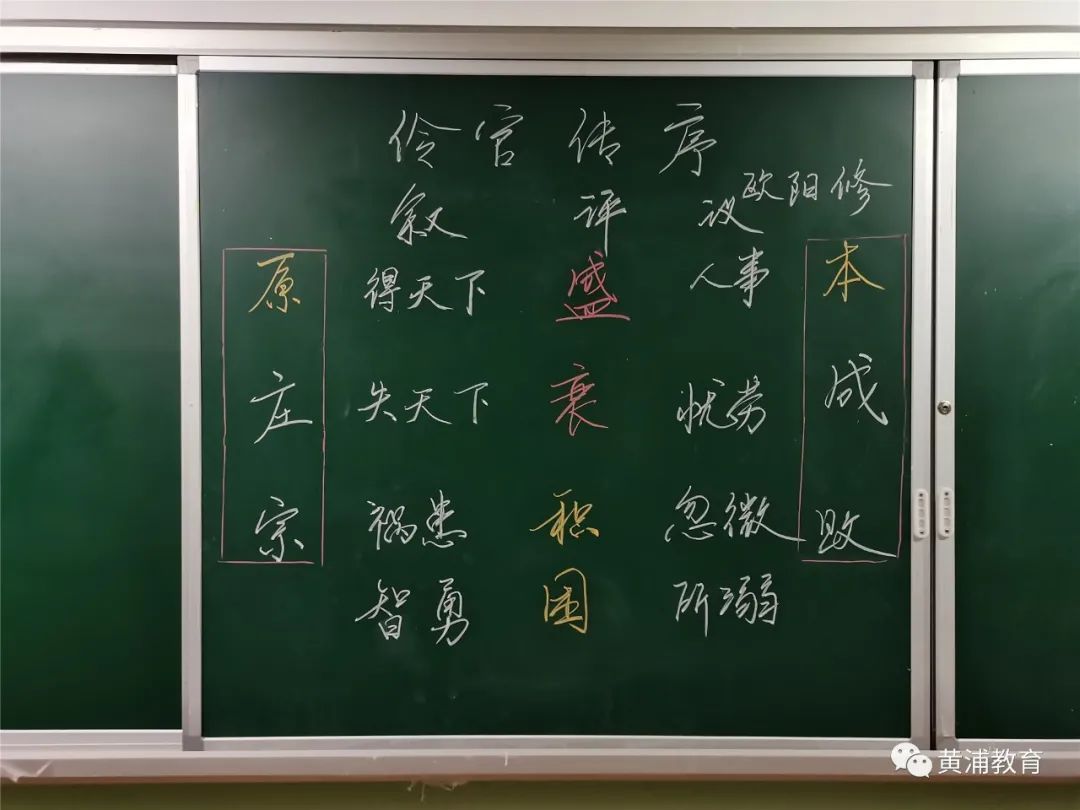 伶官传序
欧阳修
叙 评 议
原庄宗
得天下 盛 人事
失天下 衰 忧劳
祸患 积 忽微
智勇 困 所溺
本成败
黄浦教育